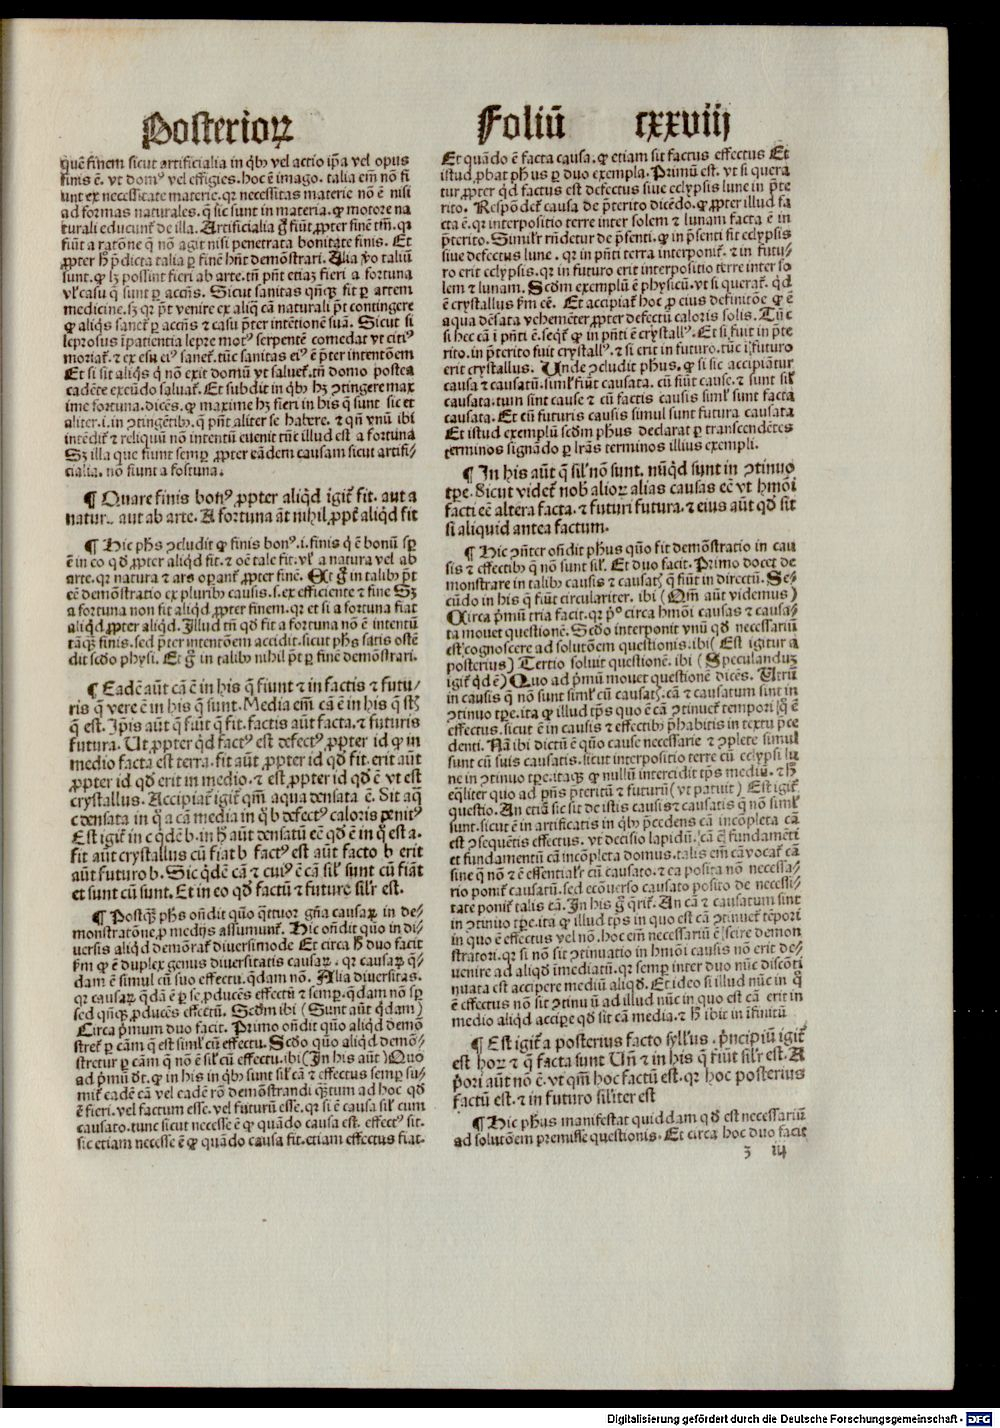 Posteriorꝝ
Foliū cxxviij
quē finem sicut artificialia in qͥbꝰ vel actio ip̄a vel opus
finis ē. vt domꝰ vel effigies. hoc ē imago. talia em̄ nō fi
unt ex necessitate materie. qꝛ necessitas materie nō ē nisi
ad formas naturales. q̄ sic sunt in materia. ꝙ motore na
turali educunt᷑ de illa. Artificialia g̊ fiūt ꝓpter finē tm̄. qꝛ
fiūt a ratōne q̄ nō agit nisi penetrata bonitate finis. Et
ꝓpter h̊ p̄dicta talia ꝑ finē hn̄t demōstrari. Alia ꝟo taliū
sunt. ꝙ lꝫ possint fieri ab arte. tn̄ pn̄t etiaꝫ fieri a fortuna
vl̓ casu q̄ sunt ꝑ accn̄s. Sicut sanitas qn̄qꝫ fit ꝑ artem
medicine. sꝫ qꝛ pōt venire ex aliq̄ cā naturali pōt contingere
ꝙ aliqͥs sanet᷑ ꝑ accn̄s ⁊ casu p̄ter intētionē suā. Sicut si
leprosus īpatientia lepre motꝰ serpentē comedat vt citiꝰ
moriat᷑. ⁊ ex esu eiꝰ sanet᷑. tūc sanitas eiꝰ ē p̄ter intentōem
Et si sit aliqͥs q̄ nō exit domū vt saluet᷑. tn̄ domo postea
cadēte exeūdo saluat᷑. Et subdit in qͥbꝰ hꝫ ↄtingere max
ime fortuna. dicēs. ꝙ maxime hꝫ fieri in his q̄ sunt sic et
aliter. i. in ↄtingētibꝰ. q̄ pn̄t aliter se habere. ⁊ qn̄ vnū ibi
intēdit᷑ ⁊ reliquū nō intentū euenit tūc illud est a fortuna
Sꝫ illa que fiunt semꝑ ꝓpter eādem causam sicut artifi⸗
cialia. nō fiunt a fortuna.
¶ Quare finis bonꝰ ꝓpter aliqͥd igit᷑ fit. aut a
natur.. aut ab arte. A fortuna āt nihil ꝓpt᷑ aliqͥd fit
¶ Hic ph̄s ↄcludit ꝙ finis bonꝰ. i. finis q̄ ē bonū sꝑ
ē in eo qd̓ ꝓpter aliqͥd fit. ⁊ oē tale fit. vl̓ a natura vel ab
arte. qꝛ natura ⁊ ars oꝑant᷑ ꝓpter finē. Et g̊ in talibꝰ pōt
eē demōstratio ex pluribꝰ causis. s. ex efficiente ⁊ fine Sꝫ
a fortuna non fit aliqͥd ꝓpter finem. qꝛ et si a fortuna fiat
aliqͥd ꝓpter aliqͥd. Illud tn̄ qd̓ fit a fortuna nō ē intentū
tāqꝫ finis. sed p̄ter intentōem accidit. sicut ph̄s satis ostē
dit scd̓o physi. Et g̊ in talibꝰ nihil pōt ꝑ finē demōstrari.
¶ Eadē aūt cā ē in his q̄ fiunt ⁊ in factis ⁊ futu⸗
ris q̄ vere ē in his q̄ sunt. Media em̄ cā ē in his q̄
q̄ est. Ip̄is aūt q̄ fiūt q̄ fit. factis aūt facta. ⁊ futuris
futura. Ut ꝓpter qͥd factꝰ est defectꝰ ꝓpter id ꝙ in
medio facta est terra. fit aūt ꝓpter id qd̓ fit. erit aūt
ꝓpter id qd̓ erit in medio. ⁊ est ꝓpter id qd̓ ē vt est
crystallus. Accipiat᷑ igit᷑ qm̄ aqua densata ē. Sit aq̄
c densata in q̊ a cā media in q̊ b defectꝰ caloris penitꝰ
Est igit᷑ in c qͥdē b. in h̊ aūt densatū eē qd̓ ē in q̊ est a.
fit aūt crystallus cū fiat b factꝰ est aūt facto b erit
aūt futuro b. Sic qͥdē cā ⁊ cuiꝰ ē cā sil̓ sunt cū fiāt
et sunt cū sunt. Et in eo qd̓ factū ⁊ future sil̓r est.
¶ Postqꝫ ph̄s on̄dit quō q̄ttuor gn̄a causaꝝ in de⸗
monstratōne ꝓ medijs assumunt᷑. Hic on̄dit quo in di⸗
uersis aliqͥd demōrat᷑ diuersimode Et circa h̊ duo facit
pͥm ꝙ ē duplex genus diuersitatis causaꝝ. qꝛ causaꝝ q̄⸗
dam ē simul cū suo effectu. q̄dam nō. Alia diuersitas.
qꝛ causaꝝ q̄dā ē ꝑ se ꝓducēs effectū ⁊ semꝑ. q̄dam nō sꝑ
sed qn̄qꝫ ꝓducēs effectū. Scd̓m ibi (Sunt aūt q̄dam)
Circa pͥmum duo facit. Primo on̄dit quō aliqͥd demō
stret᷑ ꝑ cām q̄ est siml̓ cū effectu. Scd̓o quo aliqͥd demō⸗
stretur ꝑ cām q̄ nō ē sil̓ cū effectu. ibi (In his aūt) Quo
ad pͥmū dt̓. ꝙ in his in qͥbꝰ sunt sil̓ cā ⁊ effectus semꝑ su⸗
mit᷑ eadē cā vel eadē rō demōstrandi qꝫtum ad hoc qd̓
ē fieri. vel factum esse. vel futurū esse. qꝛ si ē causa sil̓ cum
causato. tunc sicut necesse ē ꝙ quādo causa est. effectꝰ sit.
sic etiam necesse ē ꝙ quādo causa fit. etiam effectus fiat.
Et quādo ē facta causa. ꝙ etiam sit factus effectus Et
istud ꝓbat ph̓us ꝑ duo exempla. Primū est. vt si quera
tur. ꝓpter qͥd factus est defectus siue eclypsis lune in p̄te
rito. Respōdet᷑ causa de p̄terito dicēdo. ꝙ ꝓpter illud fa
cta ē. qꝛ interpositio terre inter solem ⁊ lunam facta ē in
p̄terito. Simil̓r rn̄detur de p̄senti. ꝙ in p̄senti fit eclypsis
siue defectus lune. qꝛ in pn̄ti terra interponit᷑. ⁊ in futu⸗
ro erit eclypsis. qꝛ in futuro erit interpositio terre inter so
lem ⁊ lunam. Scd̓m exemplū ē physicū. vt si querat᷑. qͥd
ē crystallus fm̄ eē. Et accipiat᷑ hoc ꝓ eius definitōe ꝙ ē
aqua dēsata vehemēter ꝓpter defectū caloris solis. Tūc
si hec cā i pn̄ti ē. seqͥt᷑ ꝙ in pn̄ti ē crystallꝰ. Et si fuit in p̄te
rito. in p̄terito fuit crystallꝰ. ⁊ si erit in futuro. tūc ī futuro
erit crystallus. Unde ↄcludit ph̓us. ꝙ si sic accipiātur
causa ⁊ causatū. siml̓ fiūt causata. cū fiūt cause. ⁊ sunt sil̓
causata. tum sint cause ⁊ cū factis causis siml̓ sunt facta
causata. Et cū futuris causis simul sunt futura causata
Et istud exemplū scd̓m ph̓us declarat ꝑ transcendētes
terminos signādo ꝑ lr̄as terminos illius exempli.
¶ In his aūt q̄ sil̓ nō sunt. nūqͥd sunt in ↄtinuo
tꝑe. Sicut videt᷑ nob̓ alioꝝ alias causas eē vt hm̄oi
facti eē altera facta. ⁊ futuri futura. ⁊ eius aūt qd̓ sit
si aliquid antea factum.
¶ Hic ↄn̄ter on̄dit ph̓us quō fit demōstratio in cau
sis ⁊ effectibꝰ q̄ nō sunt sil̓. Et duo facit. Primo docet de
monstrare in talibꝰ causis ⁊ causatꝭ q̄ fiūt in directū. Se⸗
cūdo in his q̄ fiūt circulariter. ibi (Qm̄ aūt videmus)
Circa pͥmū tria facit. qꝛ pͥo circa hm̄oi causas ⁊ causa⸗
ta mouet questionē. Scd̓o interponit vnū qd̓ necessariū
est cognoscere ad solutōem questionis. ibi (Est igitur a
posterius) Tertio soluit questionē. ibi (Speculanduꝫ
igit᷑ qͥd ē) Quo ad pͥmū mouet questionē dicēs. Utrū
in causis q̄ nō sunt siml̓ cū causatꝭ. cā ⁊ causatum sint in
ↄtinuo tꝑe. ita ꝙ illud tp̄s quo ē cā ↄtinuet᷑ tempori q̊ ē
effectus. sicut ē in causis ⁊ effectibꝰ p̄habitis in textu p̄ce
denti. Nā ibi dictū ē quō cause necessarie ⁊ ↄplete simul
sunt cū suis causatis. sicut interpositio terre cū eclypsi lu
ne in ↄtinuo tꝑe. itaqꝫ ꝙ nullū intercidit tp̄s mediū. ⁊ h̊
eq̄liter quo ad pn̄s p̄teritū ⁊ futurū (vt patuit) Est igit᷑
questio. An etiā sic sit de istis causis ⁊ causatis q̄ nō siml̓
sunt. sicut ē in artificatis in qͥbꝰ p̄cedens cā incōpleta cā
est ↄsequētis effectus. vt decisio lapidū. cā ē fundamēti
et fundamentū cā incōpleta domus. talis em̄ cā vocat᷑ cā
sine q̄ nō ⁊ ē essential̓r cū causato. ⁊ ea posita nō necessa⸗
rio ponit᷑ causatū. sed ecōuerso causato posito de necessi⸗
tate ponit᷑ talis cā. In his g̊ q̄rit᷑. An cā ⁊ causatum sint
in ↄtinuo tꝑe. ita ꝙ illud tp̄s in quo est cā ↄtinuet᷑ tēpori
in quo ē effectus vel nō. hoc em̄ necessariū ē scire demon
stratori. qꝛ si nō sit ↄtinuatio in hm̄oi causis nō erit de⸗
venire ad aliqͥd īmediatū. qꝛ semꝑ inter duo nūc discōti
nuata est accipere mediū aliqͥd. Et ideo si illud nūc in q̊
ē effectus nō sit ↄtinuū ad illud nūc in quo est cā erit in
medio aliqͥd accipe qd̓ sit cā media. ⁊ h̊ ibit᷑ in īfinitū
¶ Est igit᷑ a posterius facto syll̓us. pͥncipiū igit᷑
est hoꝝ ⁊ q̄ facta sunt Un̄ ⁊ in his q̄ fiūt sil̓r est. A
pͥori aūt nō ē. vt qm̄ hoc factū est. qꝛ hoc posterius
factū est. ⁊ in futuro sil̓iter est
¶ Hic ph̓us manifestat quiddam qd̓ est necessariū
ad solutōem premisse questionis. Et circa hoc duo facit
ʒ iij
Digitalisierung gefördert durch die Deutsche Forschungsgemeinschaft - DFG